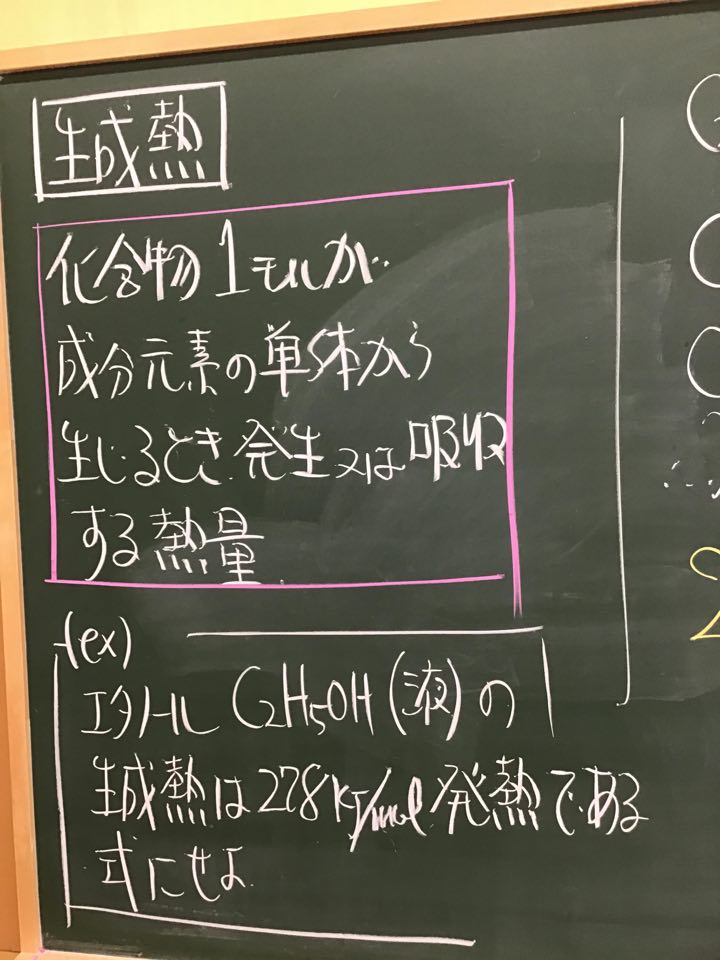 生成熱
化合物1モルが
成分元素の単体から
生じるとき発生又は吸収
する熱量
(ex)
エタノール C2H5OH(液)の
生成熱は278kJ/mol発熱である
式にせよ
2